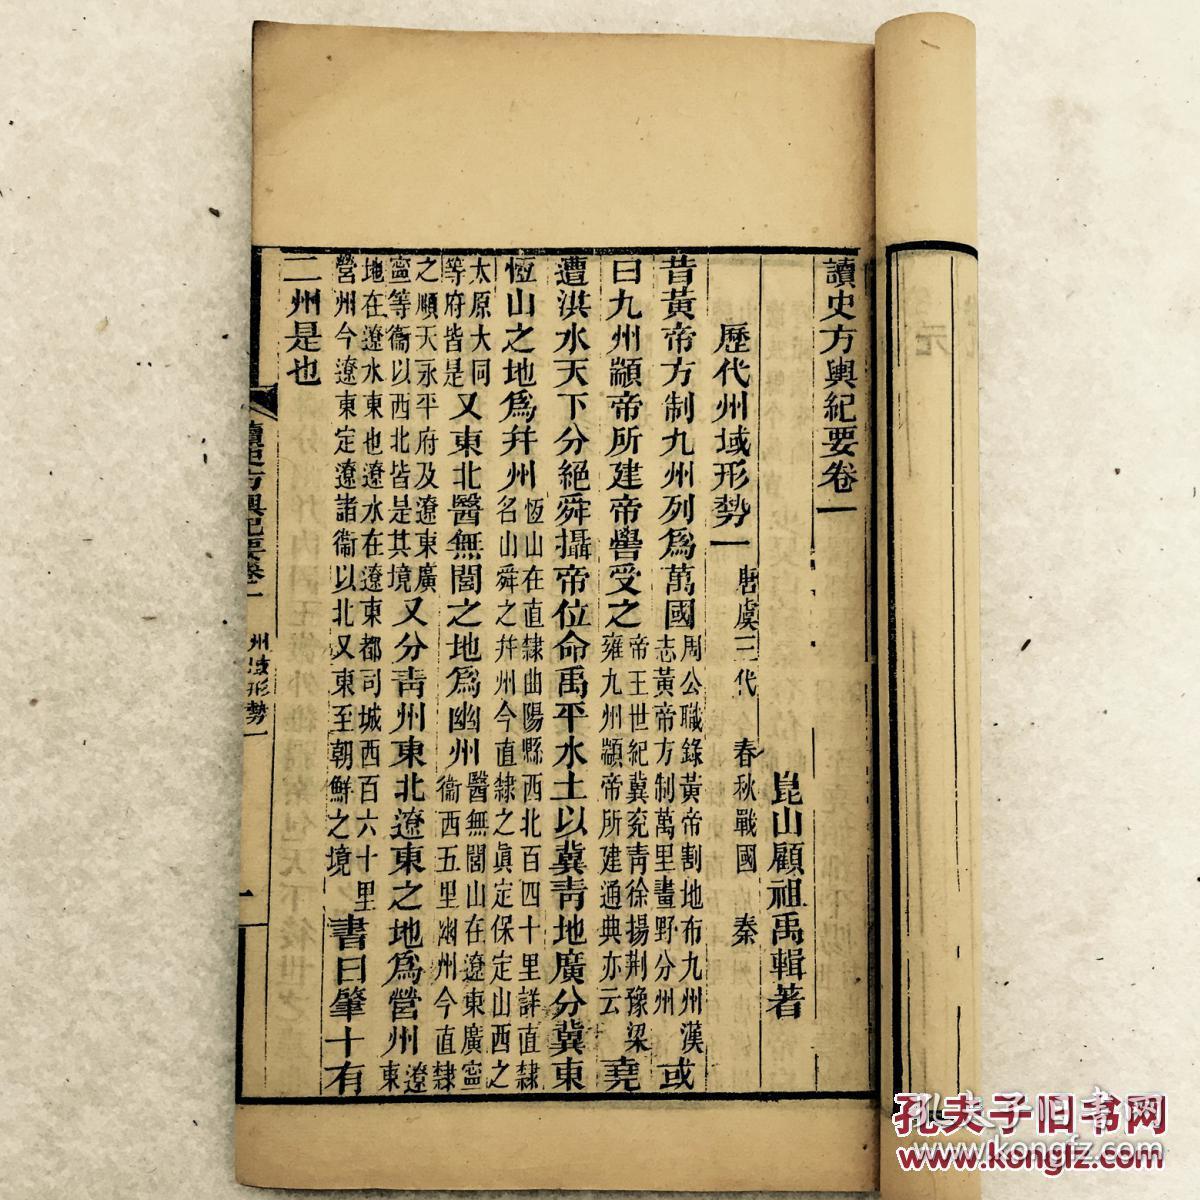 讀史方輿紀要卷一
崑山顧祖禹輯著
歷代州域形勢一 唐虞三代 春秋戰國 秦
昔黃帝方制九州列爲萬國 周公職錄黃帝割地布九州漢志黃帝方制萬里畫野分州 或
曰九州顓帝所建帝嚳受之 帝王世紀冀兗青徐揚荆豫梁雍九州顓帝所建通典亦云 堯
遭洪水天下分絕舜攝帝位命禹平水土以冀青地廣分冀東
恆山之地爲幷州 恆山在直隸曲陽縣西北百四十里詳直隸名山舜之幷州今直隸之眞定保定山西之
太原大同等府皆是 又東北醫無閭之地爲幽州 醫無閭山在遼東廣寧衞西五里幽州今直隸
之順天永平府及遼東廣寧等衞以西北皆是其境 又分青州東北遼東之地爲營州 遼東
地在遼水東也遼水在遼東都司城西百六十里營州今遼東定遼諸衞以北又東至朝鮮之境 書曰肇十有
二州是也
讀史方輿紀要卷一 州域形勢一 一
元
孔夫子旧书网
www.kongfz.com